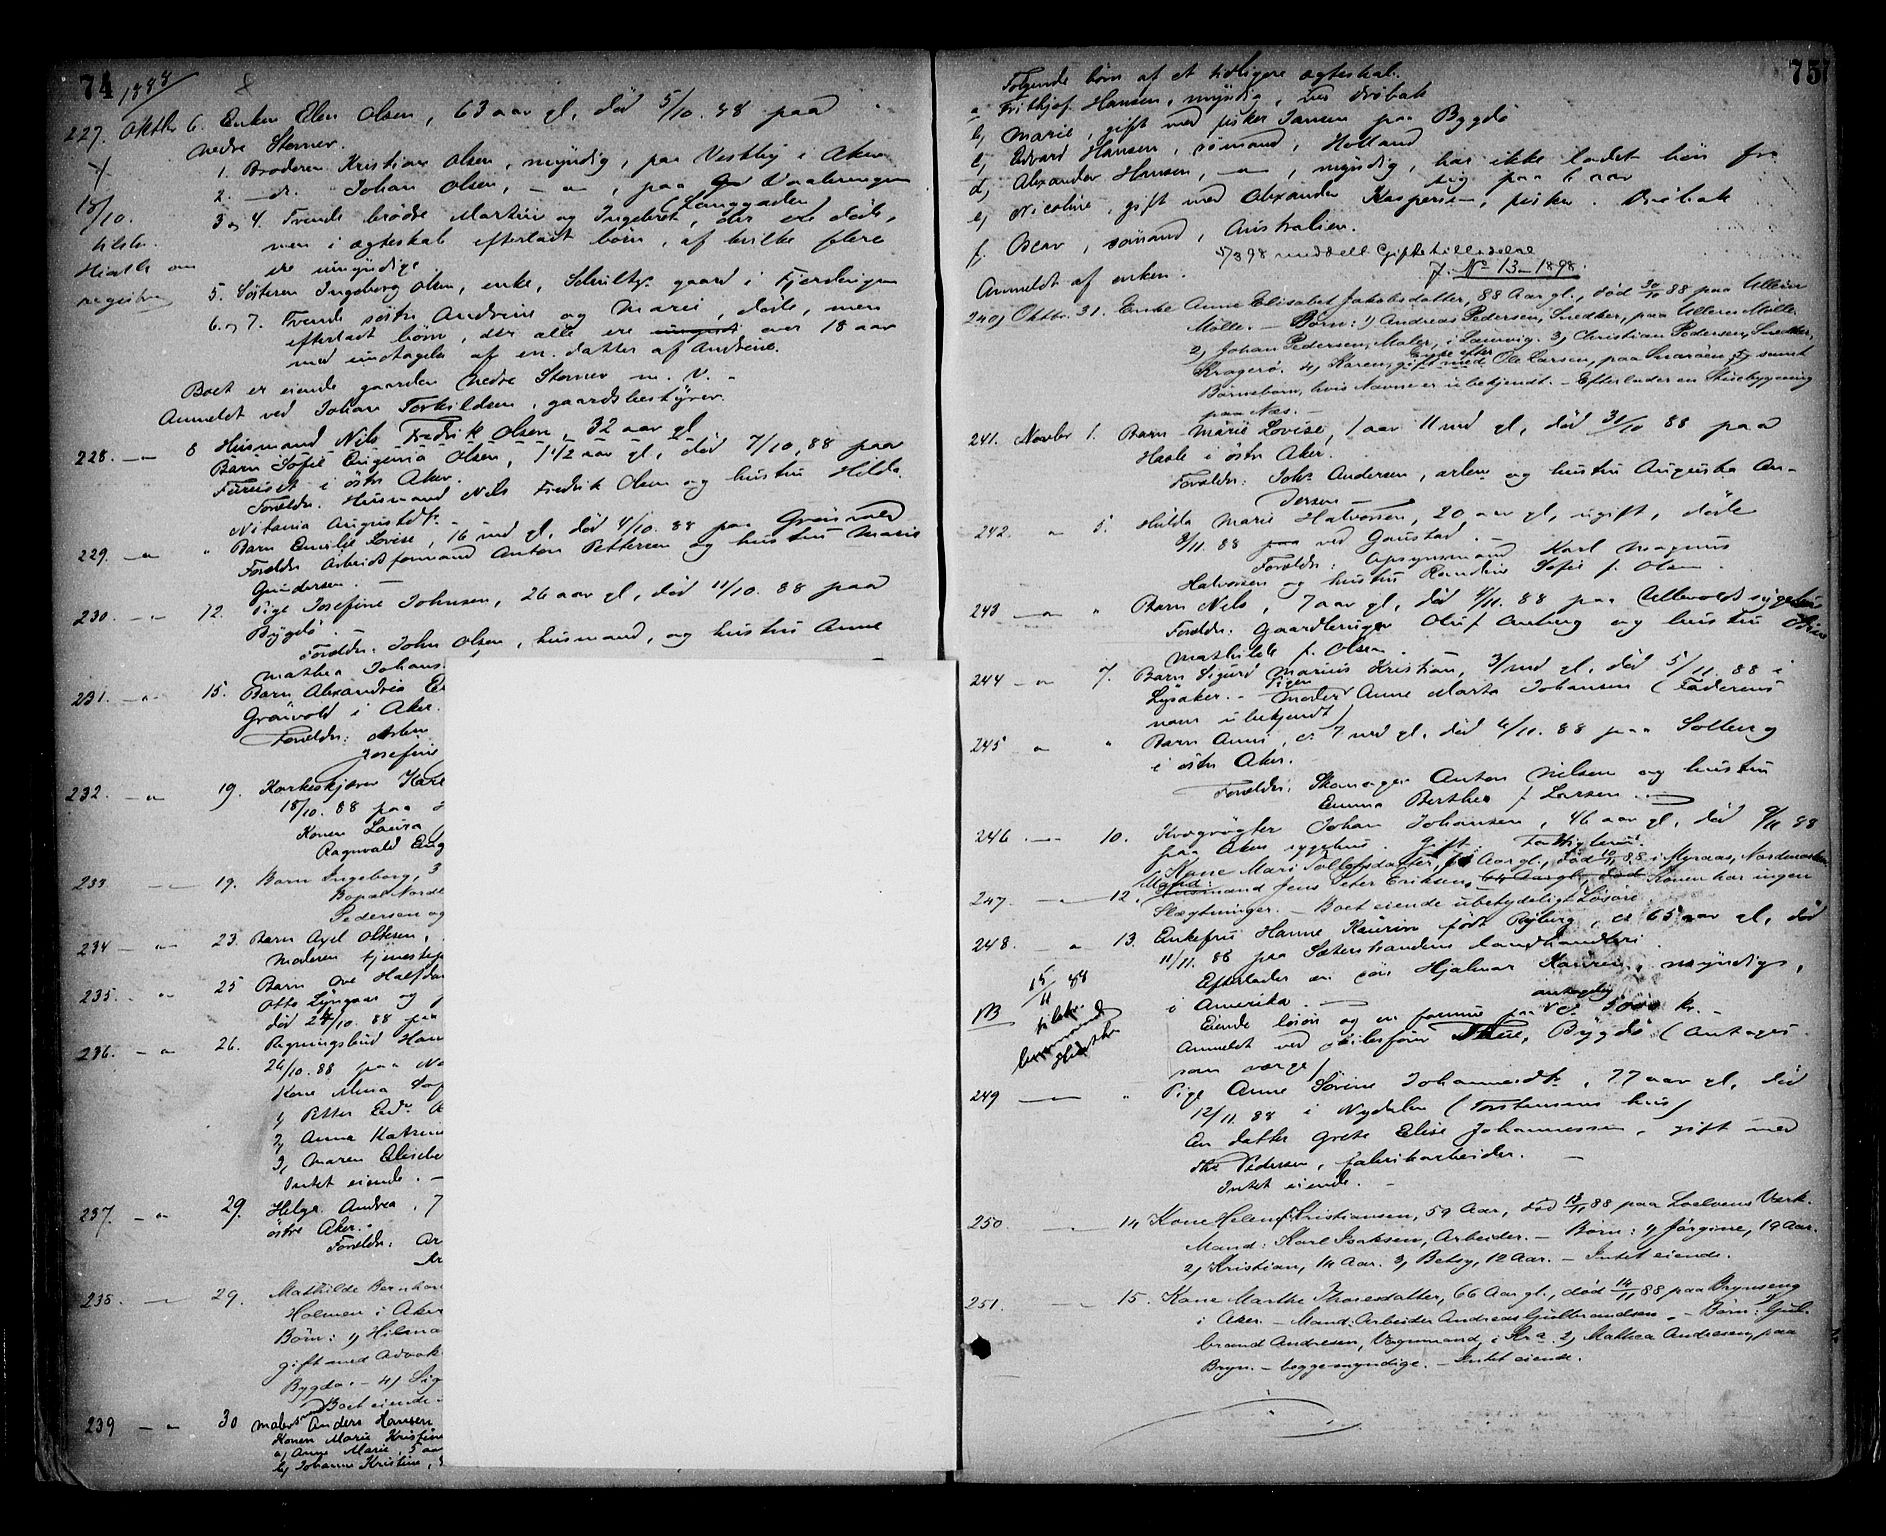 74
1888
227. Oktbr 6. Enken Elen Olsen, 63 aar gl, død 5/10. 88 paa
nedre Stovner.
1. Broderen Kristian Olsen, myndig, paa Vestby i Aker
2. – dr. Johan Olsen, – " – , paa Vaalerengen
(Langgaden)
3 og 4. Tvende brødre Martin og Ingebret, der ere døde,
men i ægteskab efterladt børn, af hvilke flere
ere umyndige
18/10.
tilskr.
5. Søsteren Ingeborg Olsen, enke, Schultz gaard i Fjerdingen
6. og 7. Tvende søstre Andrine og Marie, døde, men
efterladt børn, der alle ere over 18 aar
med undtagelse af en datter af Andrine.
Boet er eiende gaarden nedre Stovner m. v. –
Anmeldt ved Johan Torkildsen, gaardsbestyrer.
228. – " – 8 Husmand Nils Fredrik Olsen, 32 aar gl
Barn Sofie Eugenia Olsen, 1 1/2 aar gl, død 7/10. 88 paa
Furuset i østre Aker.
Forældre: Husmand Nils Fredrik Olsen og hustru Hilda
Nitania Augustdtr. –
229. – " – " Barn Emilie Lovise, 16 md gl, død 4/10. 88 paa Grønvold
Forældre Arbeidsformand Anton Pettersen og hustru Marie
Gundersen. –
230. – " – 12. Pige Josefine Johnsen, 26 aar gl, død 11/10. 88 paa
Bygdø. –
Forældre: John Olsen, husmand, og hustru Anne
Mathea Johans
231. – " – 15. Barn Alexandra
Grønvold i Aker.
Forældre: Arbm
Josefine
232. – " – 19. Korkeskjærer Karl
18/10. 88 paa
Konen Laura
Ragnvald
233 – " – 19. Barn Ingeborg, 3
Bopæl Nordst
Pedersen og
234 – " – 23. Barn Axel Olsen,
Moderen tjenestepi
235. – " – 25 Barn Ove Halfdan
Otto Lyngaas og
død 24/10. 88 paa
236. – " – 26. Regningsbud Han
26/10. 88 paa No
Kone Mina Sof
1) Petter Edv.
2) Anna Katrine
3) Maren Elisebe
Intet eiende. –
237. – " – 29. Helga Andrea, 7
østre Aker. –
Forældre: Ar
238. – " – 29. Mathilde Bernhar
Holmen i Aker
Børn: 1) Hilma
gift med Advok
Bygdø. – 4) Sig
Boet eiende
239 – " – 30 Anders Hansen
Konen Marie Kristine
a) Anne Marie, 5 aar
b) Johanne Kristine,
75
Følgende børn af et tidligere ægteskab.
a Frithjof Hansen, myndig, ved Drøbak
b) Marie, gift med fisker Jansen paa Bygdø
c) Edvard Hansen, sømand, Holland
d) Alexander Hansen, – " – , myndig, har ikke ladet høre fra
sig paa 6 aar
e) Nicoline, gift med Alexander Kaspersen, fisker. Drøbak
f. Oscar, sømand, Australien.
5/3 98 meddelt Giftetilladelse
J. No 13 – 1898.
Anmeldt af enken.
240, Oktbr. 31. Enke Anne Elisabet Jakobsdatter, 88 Aar gl., død 30/10 88 paa Ulleren
Mølle. – Børn: 1) Andreas Pedersen, Snedker, paa Ulleren Mølle.
2) Johan Pedersen, Maler, i Laurvig. 3) Christian Pedersen, Snedker,
Kragerø. 4) Karen, gift med Ole Larsen, paa Snarøen samt
enke efter
Børnebørn, hvis Navne er ubekjendt. – Efterlader en Stuebygning
paa Næs. –
241. Novbr 1. Barn Marie Lovise, 1 aar 11 md gl, død 31/10 88 paa
Hasle i østre Aker.
Forældre: Johs Andersen, arbm og hustru Augusta An-
dersen
242. " 5. Hilda Marie Halvorsen, 20 aar gl, ugift, døde
3/11. 88 paa ved Gaustad. –
Forældre: Opsynsmand Karl Magnus
Halvorsen og hustru Randine Sofie f. Olsen.
243 – " – " Barn Nils, 7 aar gl, død 4/11. 88 paa Ullevolds sygehus
Forældre: Gaardbruger Oluf Amberg og hustru
Mathilde f. Olsen.
244 – " – 7. Barn Sigurd Marius Kristian, 3/ md gl, død 5/11. 88 i
Lysaker. – Moder Pigen Anne Marta Johansen (Faderens
navn ubekjendt)
245 " " Barn Anni, ct 7 md gl, død 6/11. 88 paa Solberg
i østre Aker.
Forældre: Skomager Anton Nilsen og hustru
Emma Berthea f. Larsen. –
246 – – 10. Kvægrøgter Johan Johansen, 46 aar gl, død 9/11 88
paa Akers sygehus. Gift. Fattiglem.
Kone Mari Tollefsdatter, Aar gl., død 10/11 88 i Myraas, Nordmarken
247. – " – 12. Mand: Husmand Jens Peter Eriksen, Konen har ingen
Slægtninger. – Boet eiende ubetydeligt Løsøre.
248. – " 13. Enkefru Hanne Kaurin født Ryberg, ct 65 aar gl, død
11/11. 88 paa Sæterstrandens landhandleri.
Efterlader en søn Hjalmar Kaurin, myndig,
i Amerika. –
NB 15/11 88
tilskr.
Eiende løsøre og en formue paa antagelig ca. 5000 kr. –
Anmeldt ved skibsfører Thue, Bygdø (Antages
som værge)
249 – " Pige Anne Sørine Johannesdtr, 77 aar gl, død
12/11. 88 i Nydalen (Torstensens hus)
En datter Grete Elise Johannessen, gift med
Ths Pedersen, fabrikarbeider. –
Intet eiende. –
250. – " – 14 Kone Helene Kristiansen, 59 Aar, død 13/11 88 paa Loelvens Værk.
Mand: Karl Isaksen, Arbeider. – Børn: 1) Jørgine, 19 Aar.
2) Kristian, 14 Aar. 3) Betsy, 12 Aar. – Intet eiende.
251. – " – 15. Kone Marthe Thoresdatter, 66 Aar gl., død 14/11 88 paa Brynseng
i Aker. – Mand: Arbeider Andreas Gulbrandsen. – Børn: 1) Gul-
brand Andresen, Vognmand, i Kra. 2) Mathea Andresen, paa
Bryn. – begge myndige. – Intet eiende.